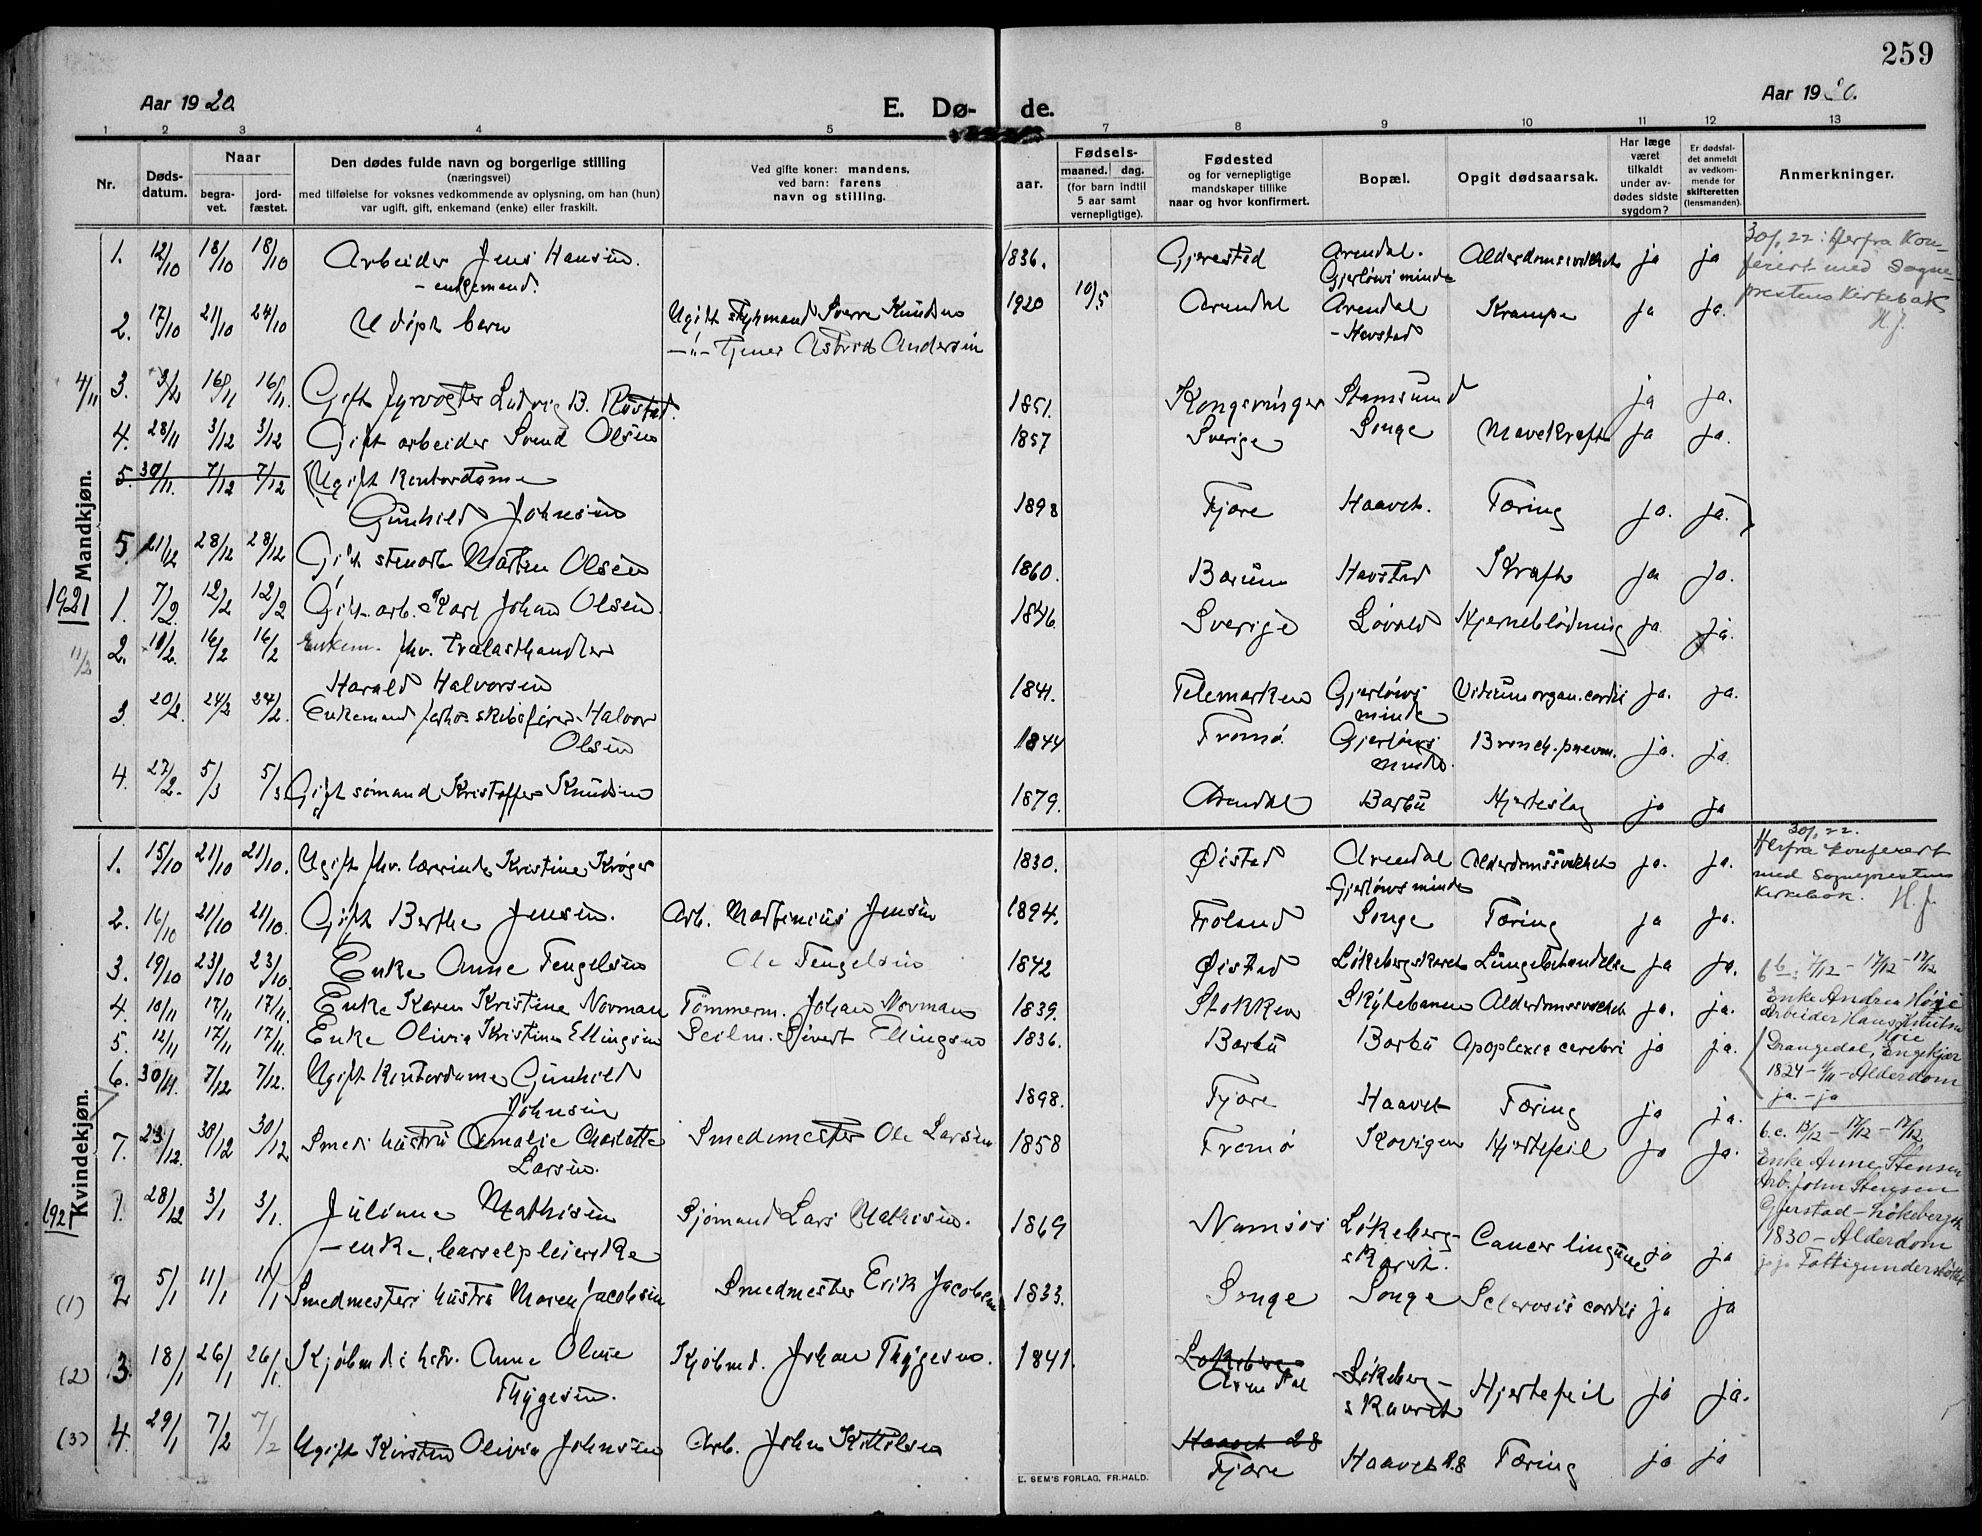 259
Aar 1920.
E. Dø-
de.
Aar 1920.
1 2 3 4 5 7 8 9 10 11 12 13
Nr.
Døds-
datum.
Naar
begra-
vet.
jord-
fæstet.
Den dødes fulde navn og borgerlige stilling
(næringsvei)
med tilføielse for voksnes vedkommende av oplysning, om han (hun)
var ugift, gift, enkemand (enke) eller fraskilt.
Ved gifte koner: mandens,
ved barn: farens
navn og stilling.
aar.
Fødsels-
maaned. dag.
(for barn indtil
5 aar samt
vernepligtige).
Fødested
og for vernepligtige
mandskaper tillike
naar og hvor konfirmert.
Bopæl.
Opgit dødsaarsak.
Har læge
været
tilkaldt
under av-
dødes sidste
sygdom?
Er dødsfal-
det anmeldt
av vedkom-
mende for
skifteretten
(lensmanden).
Anmerkninger.
Mandkjøn.
1. 12/10 18/10 18/10 Arbeider Jens Hansen. 1836. Gjerestad Arendal. Alderdomssvakhet ja ja
- enkemand. Gjerløwsminde
Herfra Kon-
ferert med Sogne-
prestens Kirkebok
H.J.
2. 17/10 21/10 24/10 Udøpt barn Ugift styrmand Sverre Knudsen 1920 10/5 Arendal Arendal Krampe ja ja.
- Havstad
-"- Tjener Astrid Andersen
4/11 3. 16/11 16/11. Gift fyrvogter Ludvig B. Rustad. 1851. Kongsvinger Stamsund ja ja.
4. 28/11 3/12 3/12 Gift arbeider Svend Olsen 1857 Sverige Songe Mavekræft ja ja.
5. 30/11. 7/12 7/12 Ugift Kontordame
Gunhild Johnsen 1898 Fjære Haavet. Tæring ja. ja.
5. 21/12 28/12 28/12 Gift stenarb. Martin Olsen 1860. Bærum Havstad Kræft ja ja.
1921
1. 7/2. 12/2 12/2 Gift arb. Karl Johan Olsen. 1846. Sverige Løvold Hjerneblødning ja ja.
11/2 2. 10/2. 16/2 16/2 Enkem. fhv. Trælasthandler
Harald Halvorsen 1841. Telemarken Gjerløws- Vitium organ. cordis ja. ja.
minde
3. 20/2. 24/2 24/2. Enkemand forhv. skibsfører Halvor
Olsen 1844 Tromø. Gjerløws- Bronch. pnevm. ja. ja.
minde.
4. 27/2. 5/3 5/3 Gift sømand Kristoffer Knudsen 1879. Arendal Barbu Hjerteslag ja ja
Kvindekjøn.
1. 15/10 21/10 21/10. Ugift fhv. lærerinde Kristine Krøger 1830. Øistad Arendal Alderdomssvakhet ja. ja.
Gjerløwsminde
Herfra konferert
med Sogneprestens
Kirkebok. H.J.
2. 16/10 21/10 21/10. Gift Berthe Jensen. Arb. Martinius Jensen 1894. Froland Songe Tæring ja ja.
3. 19/10 23/10 23/10. Enke Anne Tengelsen Ole Tengelsen 1842 Øistad Løkebergskaret Lungebetændelse ja ja.
4. 10/11 17/11 17/11. Enke Karen Kristine Novman Tømmerm. Johan Novman 1839. Stokken Skytebanen Alderdomssvakhet ja. ja.
5. 12/11 17/11 17/11. Enke Olivia Kristine Ellingsen Seilm. Sivert Ellingsen 1836. Barbu Barbu Apoplexia cerebri ja ja.
6. 30/11. 7/12 7/12. Ugift Kontordame Gunhild
Johnsen 1898. Fjære Haavet Tæring ja ja.
7. 23/12. 30/12 30/12 Smeds hustru Amalie Charlotte Smedmester Ole Larsen 1858 Tromø Skovigen Hjertefeil ja ja.
Larsen.
6 b. 7/12 - 17/12 - 17/12
Enke Andrea Høie
Arbeider Hans Knutsen
Høie
Drangedal, Engekjær
1824 - Alderdom
ja. - ja
6.c. 13/12 - 17/12 - 17/12
Enke Anne Stensen
Arb. John Stensen
Gjerstad - Løkebergsk
1830 - Alderdom
ja ja Fattigunderstøttet
1921
1. 28/12 3/1 3/1. Juliane Mathisen Sjømand Lars Mathisen. 1869 Namsos Løkeberg- Cancer lingvae ja ja
- enke, barselpleierske skaret.
(1) 2 5/1 11/1 11/1 Smedmesters hustru Maren Jacobsen Smedmester Erik Jacobsen 1833. Songe Songe Sclerosis cordis ja ja
(2) 3. 18/1 26/1 26/1. Kjøbmds hstr. Anne Oline Kjøbmd. Johan Thygesen. 1841. Løkeberg Løkeberg- Hjertefeil ja ja.
Thygesen. Arendal skaaret
(3) 4. 29/1 7/2 7/2 Ugift Kirsten Olivia Johnsen Arb. John Kittilsen Haavet 28 Haavet 28 Tæring ja ja
Fjære
E. SEM'S FORLAG, FR.HALD.